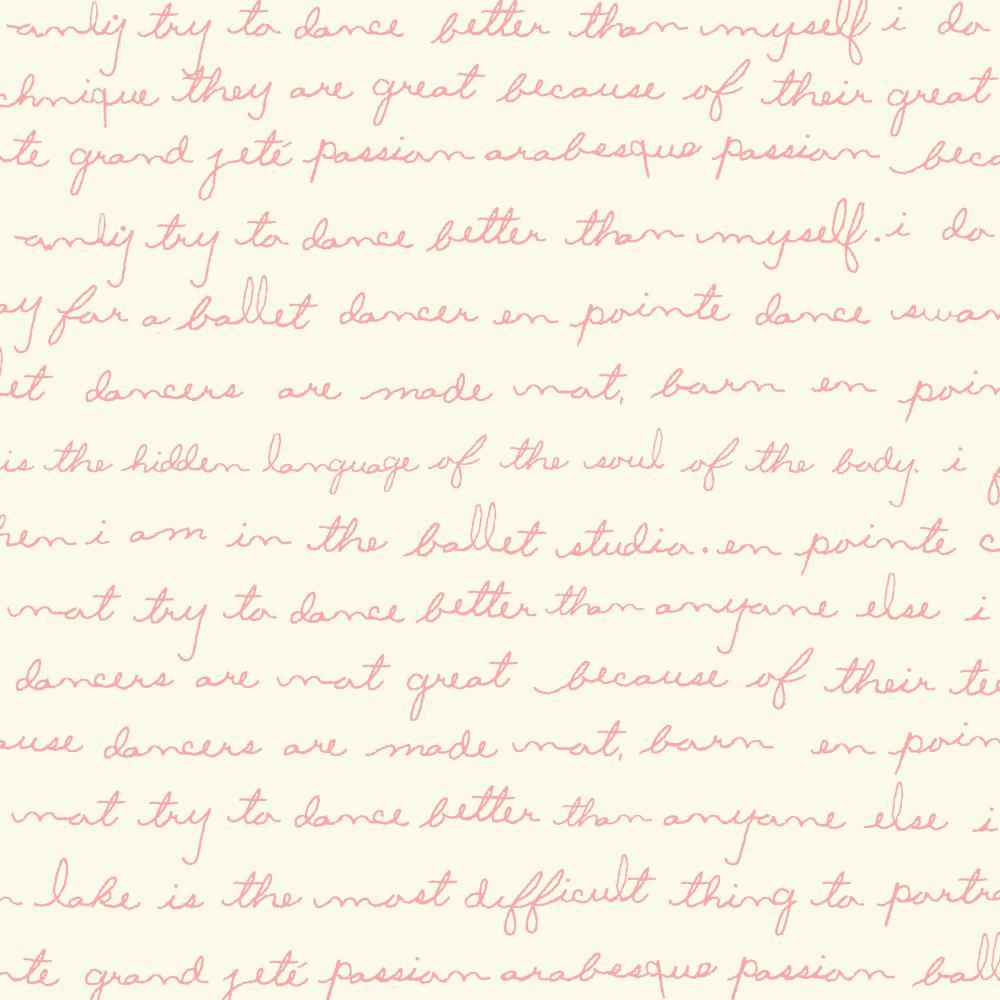 only try to dance better than myself i do
chnique they are great because of their great
te grand jeté passion arabesque passion beca
only try to dance better than myself. i do
ay for a ballet dancer en pointe dance swan
let dancers are made not, born en poin
is the hidden language of the soul of the body. i
hen i am in the ballet studio. en pointe c
not try to dance better than anyone else i
dancers are not great because of their te
ause dancers are made not, born en poin
not try to dance better than anyone else i
n lake is the most difficult thing to portra
nte grand jeté passion arabesque passion ball